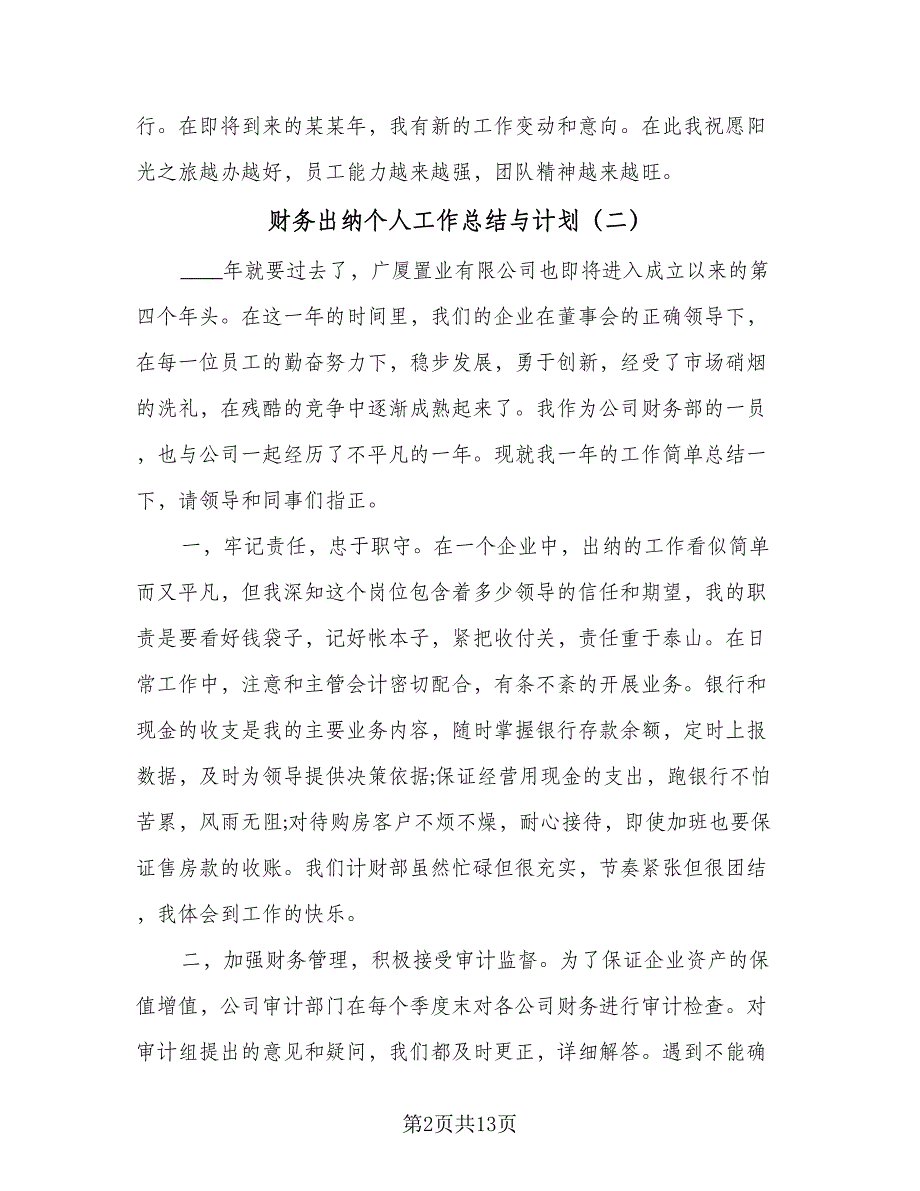 行。在即将到来的某某年，我有新的工作变动和意向。在此我祝愿阳
光之旅越办越好，员工能力越来越强，团队精神越来越旺。
财务出纳个人工作总结与计划（二）
____年就要过去了，广厦置业有限公司也即将进入成立以来的第
四个年头。在这一年的时间里，我们的企业在董事会的正确领导下，
在每一位员工的勤奋努力下，稳步发展，勇于创新，经受了市场硝烟
的洗礼，在残酷的竞争中逐渐成熟起来了。我作为公司财务部的一员
，也与公司一起经历了不平凡的一年。现就我一年的工作简单总结一
下，请领导和同事们指正。
一，牢记责任，忠于职守。在一个企业中，出纳的工作看似简单
而又平凡，但我深知这个岗位包含着多少领导的信任和期望，我的职
责是要看好钱袋子，记好帐本子，紧把收付关，责任重于泰山。在日
常工作中，注意和主管会计密切配合，有条不紊的开展业务。银行和
现金的收支是我的主要业务内容，随时掌握银行存款余额，定时上报
数据，及时为领导提供决策依据;保证经营用现金的支出，跑银行不怕
苦累，风雨无阻;对待购房客户不烦不燥，耐心接待，即使加班也要保
证售房款的收账。我们计财部虽然忙碌但很充实，节奏紧张但很团结
，我体会到工作的快乐。
二，加强财务管理，积极接受审计监督。为了保证企业资产的保
值增值，公司审计部门在每个季度末对各公司财务进行审计检查。对
审计组提出的意见和疑问，我们都及时更正，详细解答。遇到不能确
第2页共13页